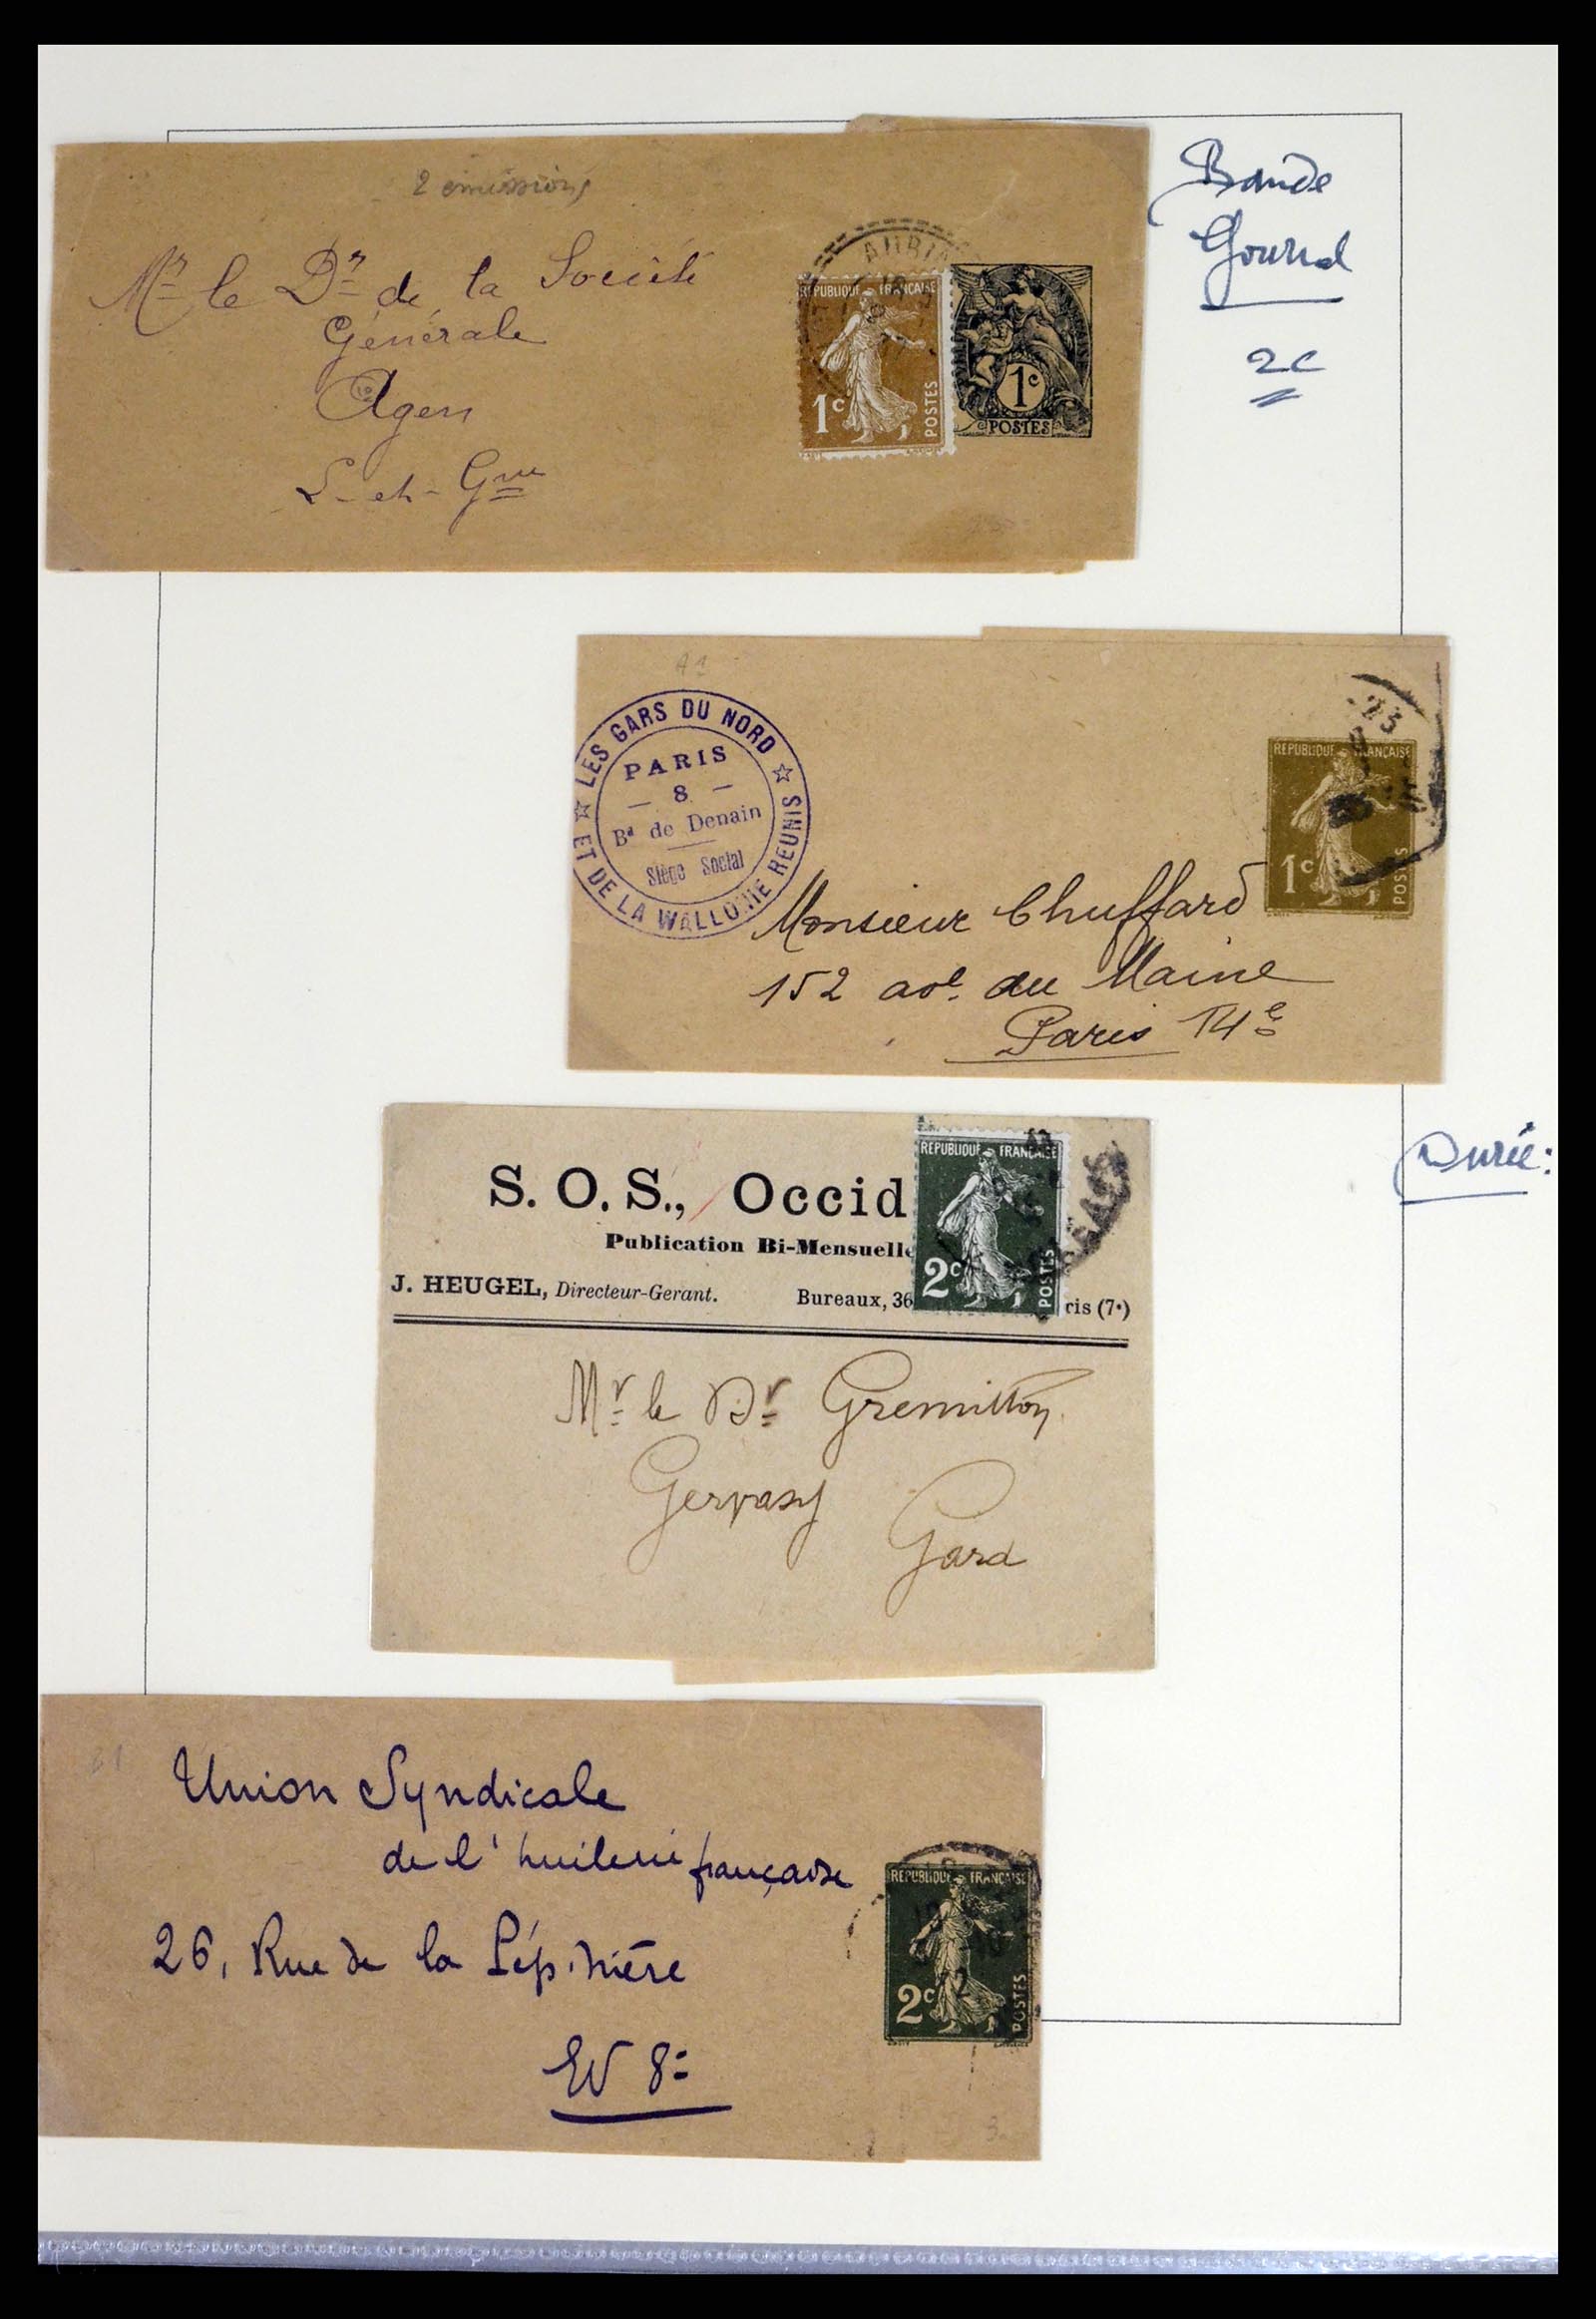 2 émissions
Mr le Dr de la Société
Générale
Agen
L-et-Gne
AUBIA
REPUBLIQUE FRANÇAISE
1c
POSTES
1c
POSTES
Bande
Journal
2c
A1
LES GARS DU NORD
ET DE LA WALLONIE REUNIS
PARIS
– 8 –
Bd de Denain
Siège Social
REPUBLIQUE FRANÇAISE
1c
POSTES
Monsieur Chuffard
152 ave. du Maine
Paris 14e
S. O. S., Occid
Publication Bi-Mensuelle
J. HEUGEL, Directeur-Gerant.
Bureaux, 36
ris (7e)
REPUBLIQUE FRANÇAISE
2c
POSTES
Mr le Dr
Gard
Durée:
Union Syndicale
de l'huilerie française
26, Rue de la Pépinière
EV 8e
REPUBLIQUE FRANÇAISE
2c
POSTES